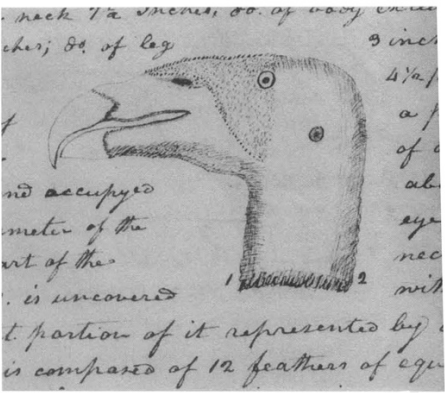 neck 7½ Inches, do. of body exclu
ches; do. of leg 3 inc
4½
a
of
and accupyed ab
ameter of the eye
art of the nec
is uncovered 1 2 with
t. portion of it represented by
is composed of 12 feathers of equ